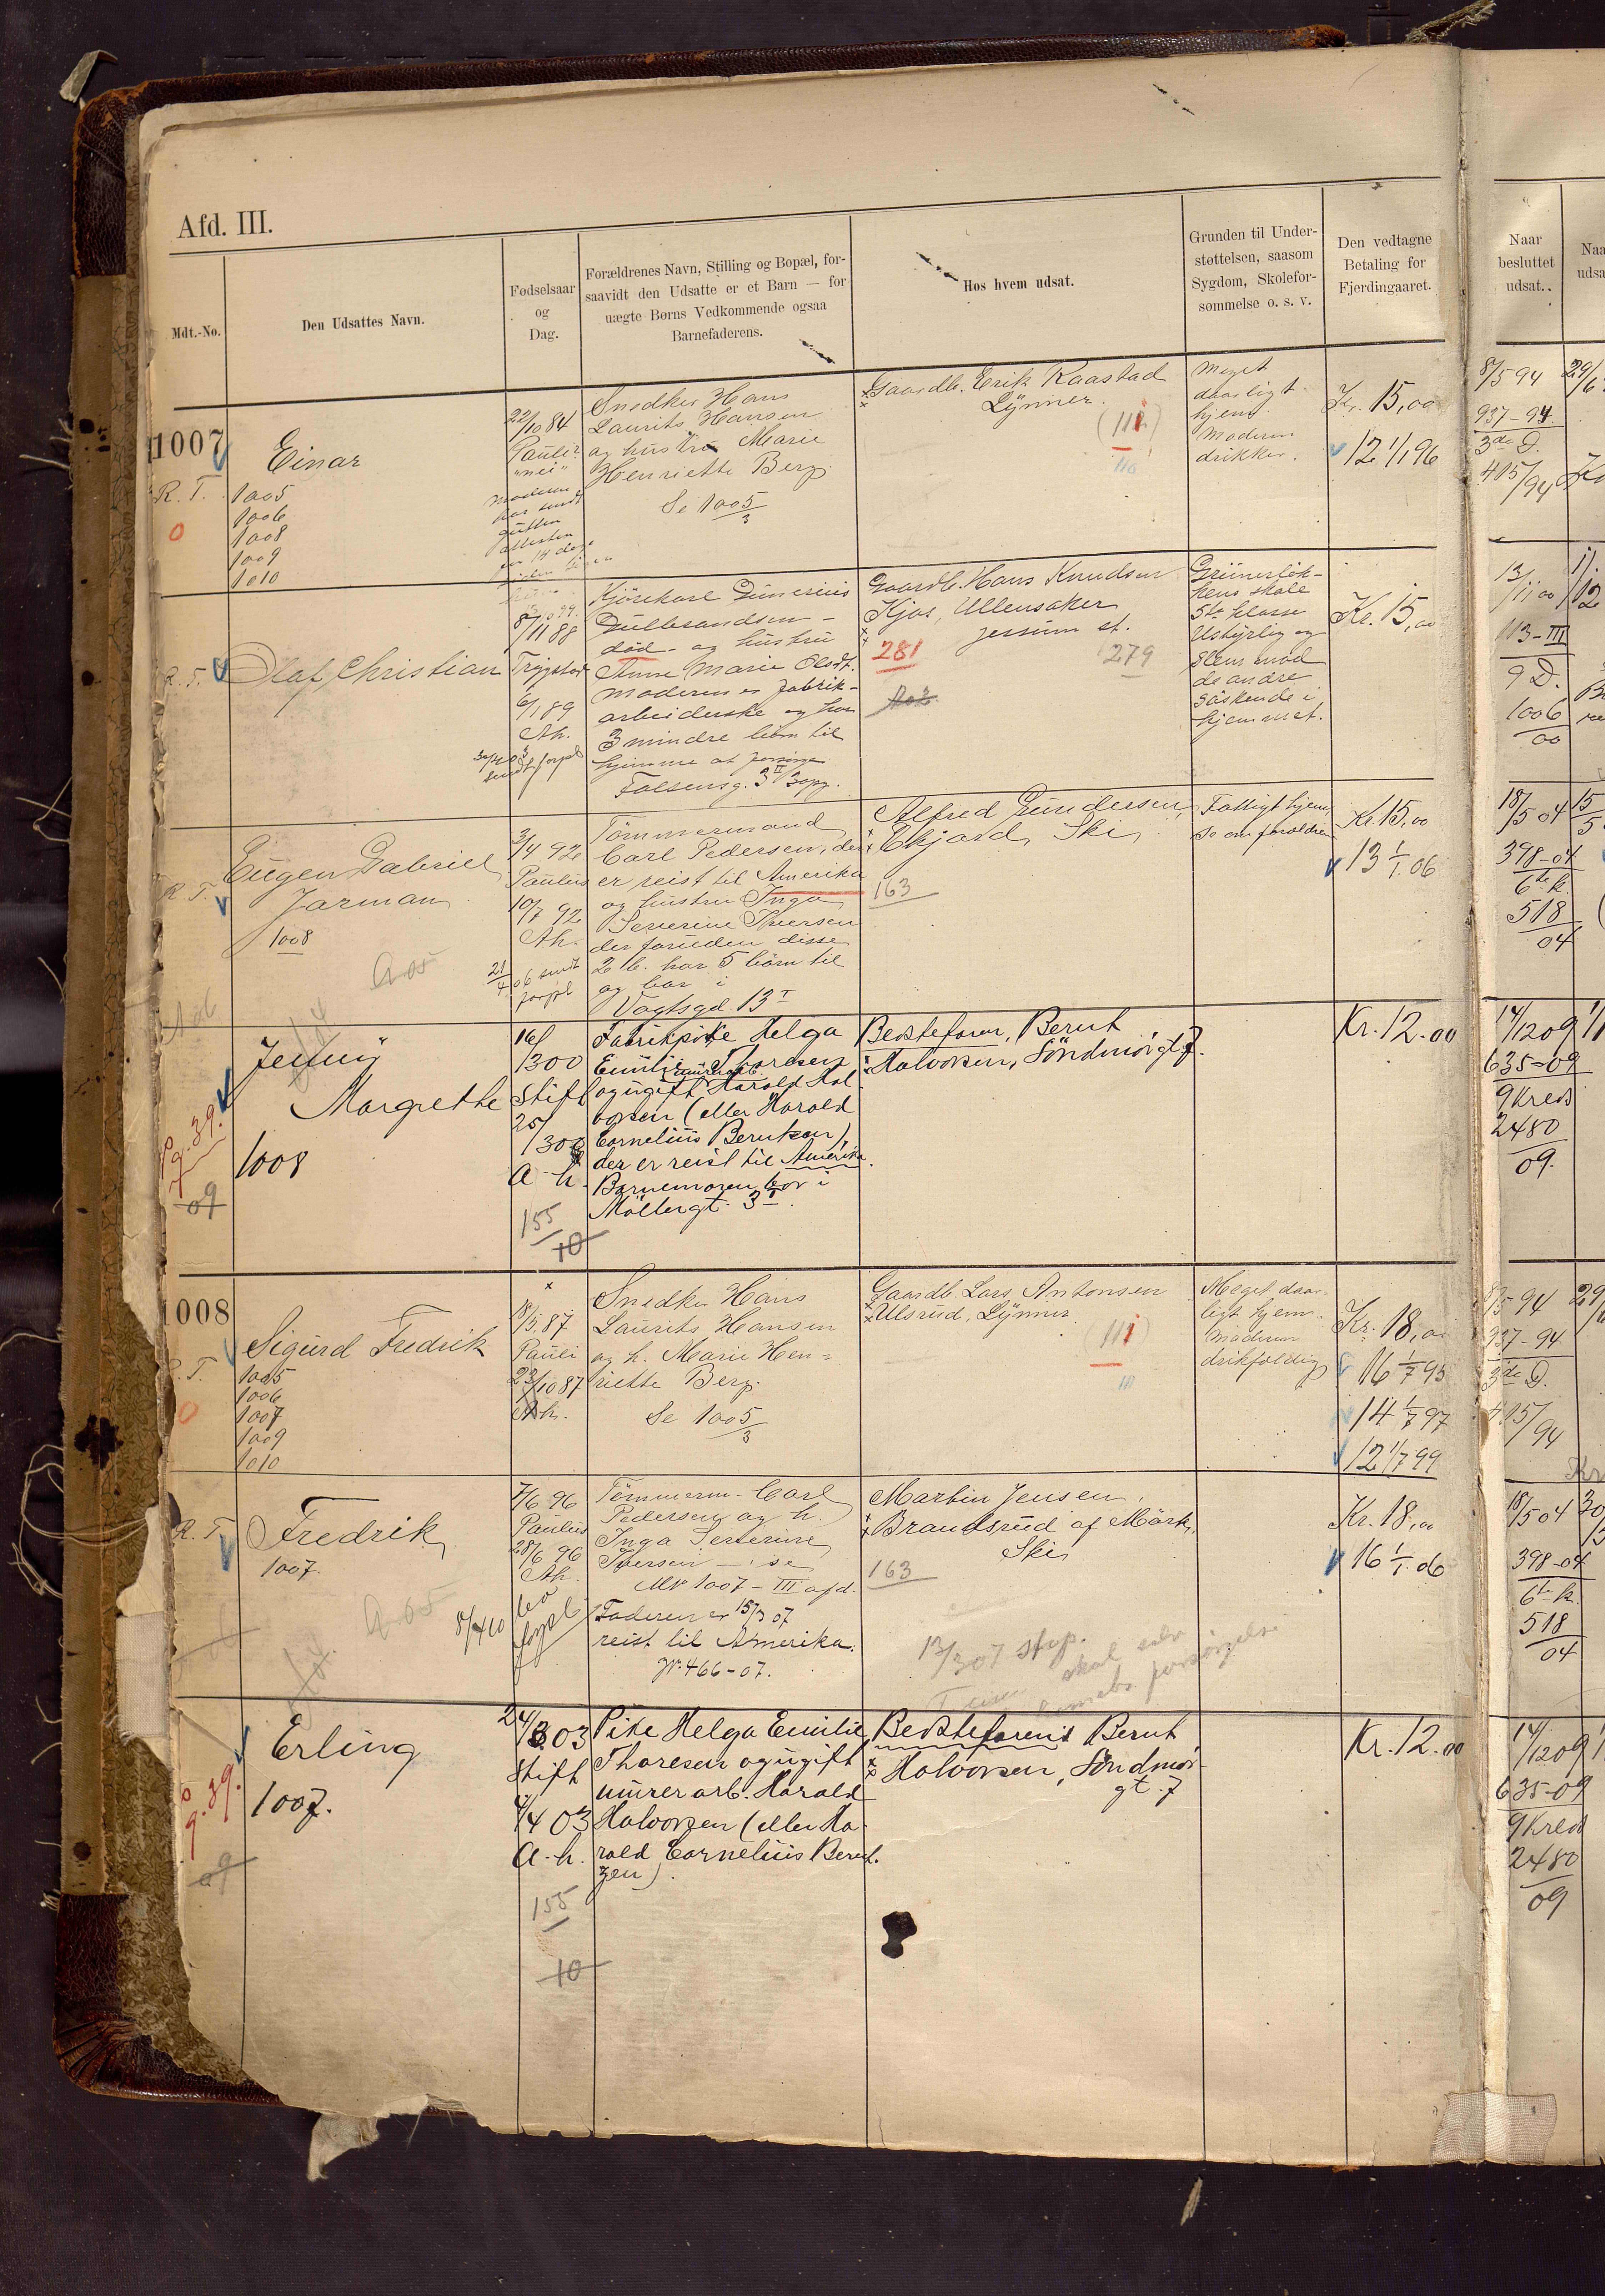 Afd. III.
Mdt.-No.
Den Udsattes Navn.
Fødselsaar
og
Dag.
Forældrenes Navn, Stilling og Bopæl, for-
saavidt den Udsatte er et Barn — for
uægte Børns Vedkommende ogsaa
Barnefaderens.
Hos hvem udsat.
Grunden til Under-
støttelsen, saasom
Sygdom, Skolefor-
sømmelse o. s. v.
Den vedtagne
Betaling for
Fjerdingaaret.
Naar
besluttet
udsat.
1007
R. T.
0
Einar
1005
1006
1008
1009
1010
22/10 84
"nei"
Snedker Hans
Laurits Hansen
og hustru Marie
Henriette Berg.
Se 1005/3
Gaardb. Erik Raastad
Lynner.
(111)
Meget
daarligt
hjem
Moderen
drikker.
Kr. 15,00
12 1/1 96
8/5 94
937-94
3de D.
415/94
R. T.
Olaf Christian
8/11 88
Trygstad
6/1 89
Ah.
Kjørekarl
Gulbrandsen -
død - og hustru
Anne Marie Olsdt.
Moderen er fabrik-
arbeiderske og har
3 mindre børn til
hjemme at forsørge
Falsensg. 3 II 3 opg.
Gaardb. Hans Knudsen
Kjos, Ullensaker
Jessum st.
281
279
Grünerløk-
kens skole
5te klasse
Ustyrlig og
slem mod
de andre
søskende i
hjemmet.
Kr. 15,00
13/11 00
113-III
9 D.
1006/00
R. T.
Eugen Gabriel
Jarman
1008
3/4 92
Paulus
10/7 92
Ah.
21/4 06 sendt
forpl
Tømmermand
Carl Pedersen, der
er reist til Amerika
og hustru Inga
Severine Iversen
der foruden disse
2 b. har 5 børn til
og bor i
Vogtsgd. 13 I
Alfred Gundersen,
Ekjord, Ski
163
Fattigt hjem,
se om forældre
Kr. 15,00
13 1/1 06
18/5 04
398-04
6te k.
518/04
Jenny
Margrethe
1008
09
16/1 300
Stift
25/1 300
A-h.
155
10
Fabrikpike Helga
Emilie Thoresen
og ugift Harald Hal
vorsen (eller Harald
Cornelius Berntsen)
der er reist til Amerika.
Barnemoren bor i
Møllergt. 3 I.
Bedstefaren, Bernt
Halvorsen, Søndmørgt. 7.
Kr. 12.00
14/12 09
635-09
9 Kreds
2480
09.
1008
R. T.
0
Sigurd Fredrik
1005
1006
1007
1009
1010
18/5 87
Pauli
23/10 87
Ah.
Snedker Hans
Laurits Hansen
og h. Marie Hen=
riette Berg.
Se 1005/3
Gaardb. Lars Antonsen
Ulsrud, Lynner
(111)
Meget daar-
ligt hjem
Moderen
drikfældig
Kr. 18,00
16 1/7 95
14 1/7 97
12 1/7 99
8/5 94
937-94
3de D.
415/94
R. T.
Fredrik
1007.
7/6 96
Paulus
28/6 96
Ah.
8/4 10
Tømmerm. Carl
Pedersen og h.
Inga Severine
Iversen — se
Mt 1007 - III afd.
Faderen er 15/3 07
reist til Amerika.
Jr. 466-07.
Martin Jensen,
Brandsrud af Mørk,
Ski
163
13/3 07
skal selv
forsørgelse
Kr. 18,00
16 1/1. 06
18/5 04
398-04
6te k.
518
04
Erling
1007.
09
24/3 03
Stift
4/4 03
A-h.
155
10
Pike Helga Emilie
Thoresen og ugift
murerarb. Harald
Halvorsen (eller Ha-
rald Cornelius Bernt-
zen).
Bedstefaren Bernt
Halvorsen, Søndmør-
gt. 7
Kr. 12.00
14/12 09
635-09
9 Kreds
2480
09